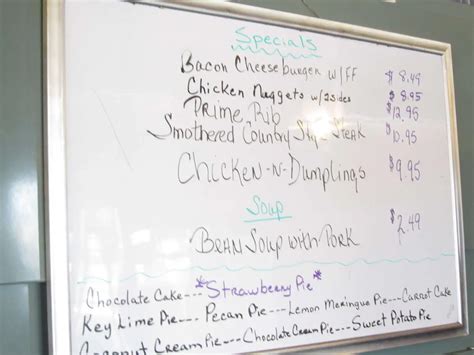 Specials
Bacon Cheeseburger w/FF $8.49
Chicken Nuggets w/2sides $8.95
Prime Rib $12.95
Smothered Country Style Steak $10.95
Chicken-N-Dumplings $9.95
Soup
Bean Soup with Pork $2.49
Chocolate Cake--- *Strawberry Pie*
Key Lime Pie--- Pecan Pie--- Lemon Meringue Pie--- Carrot Cake
Coconut Cream Pie--- Chocolate Cream Pie--- Sweet Potato Pie